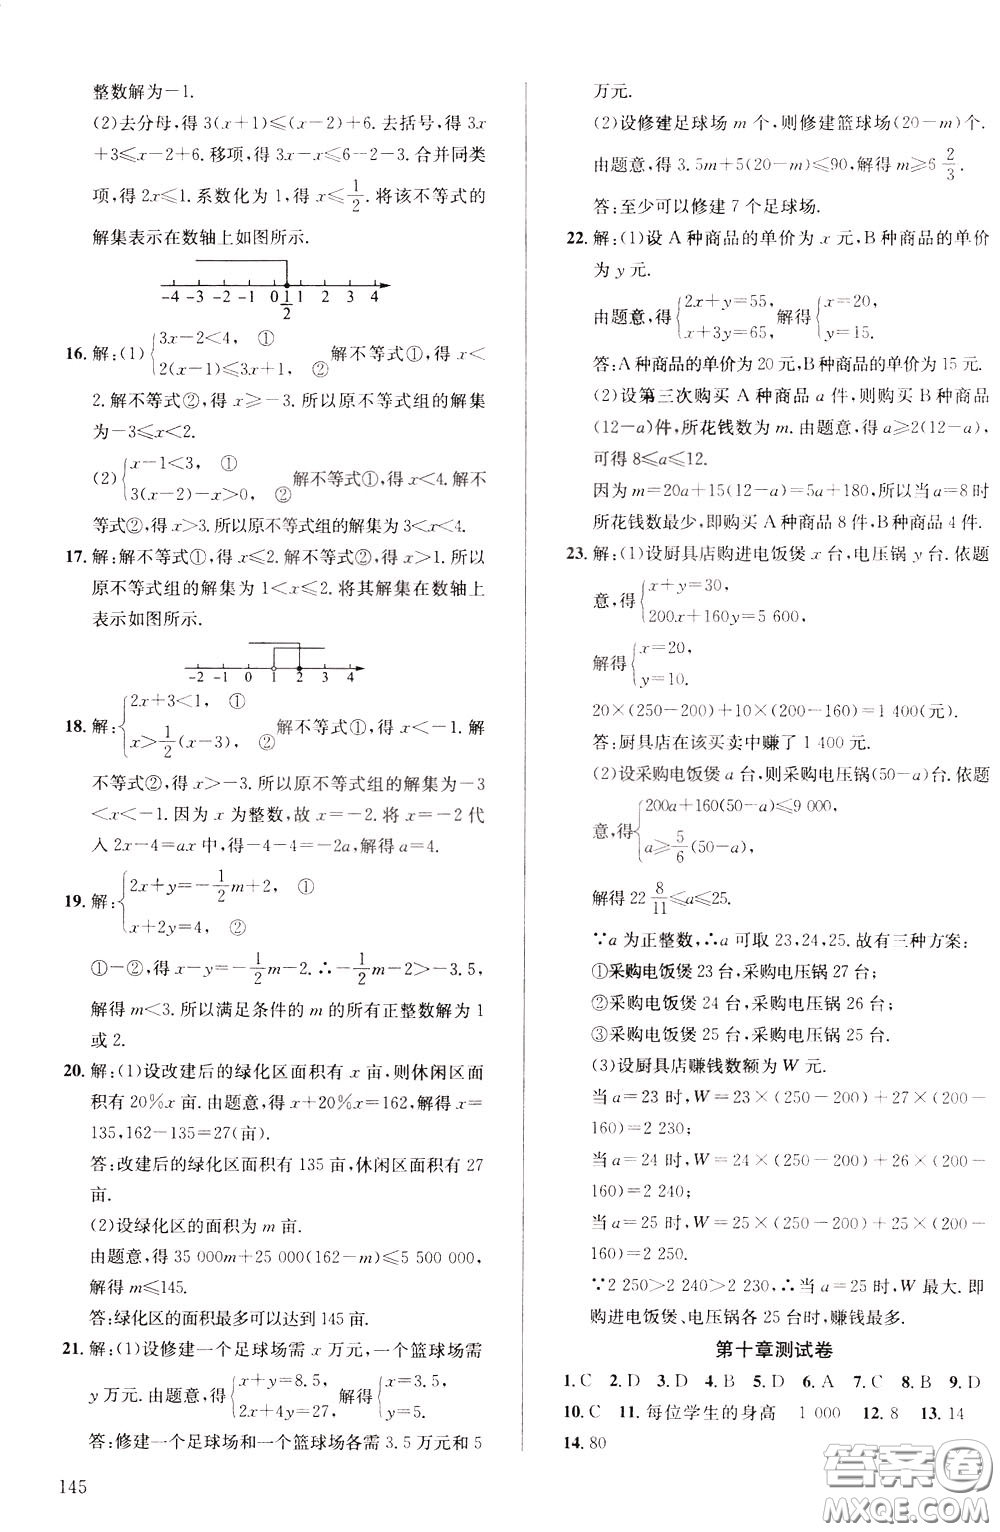 整数解为－1.
(2)去分母,得 3(x+1)≤(x－2)+6. 去括号,得 3x
+3≤x－2+6. 移项,得 3x－x≤6－2－3. 合并同类
项,得 2x≤1. 系数化为 1,得 x≤1/2. 将该不等式的
解集表示在数轴上如图所示.
-4 -3 -2 -1 0 1/2 1 2 3 4
16. 解:(1){3x－2<4, ① 2(x－1)≤3x+1, ② 解不等式①,得 x<
2. 解不等式②,得 x≥－3. 所以原不等式组的解集为
－3≤x<2.
(2){x－1<3, ① 3(x－2)－x>0, ② 解不等式①,得 x<4. 解不
等式②,得 x>3. 所以原不等式组的解集为 3<x<4.
17. 解:解不等式①,得 x≤2. 解不等式②,得 x>1. 所以
原不等式组的解集为 1<x≤2. 将其解集在数轴上
表示如图所示.
-2 -1 0 1 2 3 4
18. 解:{2x+3<1, ① x>1/2(x－3), ② 解不等式①,得 x<－1. 解
不等式②,得 x>－3. 所以原不等式组的解集为－3
<x<－1. 因为 x 为整数,故 x=－2. 将 x=－2 代
入 2x－4=ax 中,得－4－4=－2a,解得 a=4.
19. 解:{2x+y=－1/2m+2, ① x+2y=4, ②
①－②,得 x－y=－1/2m－2. ∴－1/2m－2>－3.5,
解得 m<3. 所以满足条件的 m 的所有正整数解为 1
或 2.
20. 解:(1)设改建后的绿化区面积有 x 亩,则休闲区面
积有 20%x 亩. 由题意,得 x+20%x=162,解得 x=
135,162－135=27(亩).
答:改建后的绿化区面积有 135 亩,休闲区面积有 27
亩.
(2)设绿化区的面积为 m 亩.
由题意,得 35 000m+25 000(162－m)≤5 500 000,
解得 m≤145.
答:绿化区的面积最多可以达到 145 亩.
21. 解:(1)设修建一个足球场需 x 万元,一个篮球场需
y 万元. 由题意,得{x+y=8.5, 2x+4y=27, 解得{x=3.5, y=5.
答:修建一个足球场和一个篮球场各需 3.5 万元和 5
145
万元.
(2)设修建足球场 m 个,则修建篮球场(20－m)个.
由题意,得 3.5m+5(20－m)≤90,解得 m≥6 2/3.
答:至少可以修建 7 个足球场.
22. 解:(1)设 A 种商品的单价为 x 元,B 种商品的单价
为 y 元.
由题意,得{2x+y=55, x+3y=65, 解得{x=20, y=15.
答:A 种商品的单价为 20 元,B 种商品的单价为 15 元.
(2)设第三次购买 A 种商品 a 件,则购买 B 种商品
(12－a)件,所花钱数为 m. 由题意,得 a≥2(12－a),
可得 8≤a≤12.
因为 m=20a+15(12－a)=5a+180,所以当 a=8 时
所花钱数最少,即购买 A 种商品 8 件,B 种商品 4 件.
23. 解:(1)设厨具店购进电饭煲 x 台,电压锅 y 台. 依题
意,得{x+y=30, 200x+160y=5 600,
解得{x=20, y=10.
20×(250－200)+10×(200－160)=1 400(元).
答:厨具店在该买卖中赚了 1 400 元.
(2)设采购电饭煲 a 台,则采购电压锅(50－a)台. 依题
意,得{200a+160(50－a)≤9 000, a≥5/6(50－a),
解得 22 8/11≤a≤25.
∵a 为正整数,∴a 可取 23,24,25. 故有三种方案:
①采购电饭煲 23 台,采购电压锅 27 台;
②采购电饭煲 24 台,采购电压锅 26 台;
③采购电饭煲 25 台,采购电压锅 25 台.
(3)设厨具店赚钱数额为 W 元.
当 a=23 时,W=23×(250－200)+27×(200－
160)=2 230;
当 a=24 时,W=24×(250－200)+26×(200－
160)=2 240;
当 a=25 时,W=25×(250－200)+25×(200－
160)=2 250.
∵2 250>2 240>2 230,∴当 a=25 时,W 最大. 即
购进电饭煲、电压锅各 25 台时,赚钱最多.
第十章测试卷
1. C 2. D 3. D 4. B 5. D 6. A 7. C 8. B 9. D
10. C 11. 每位学生的身高 1 000 12. 8 13. 14
14. 80
答案卷
MXQE.COM